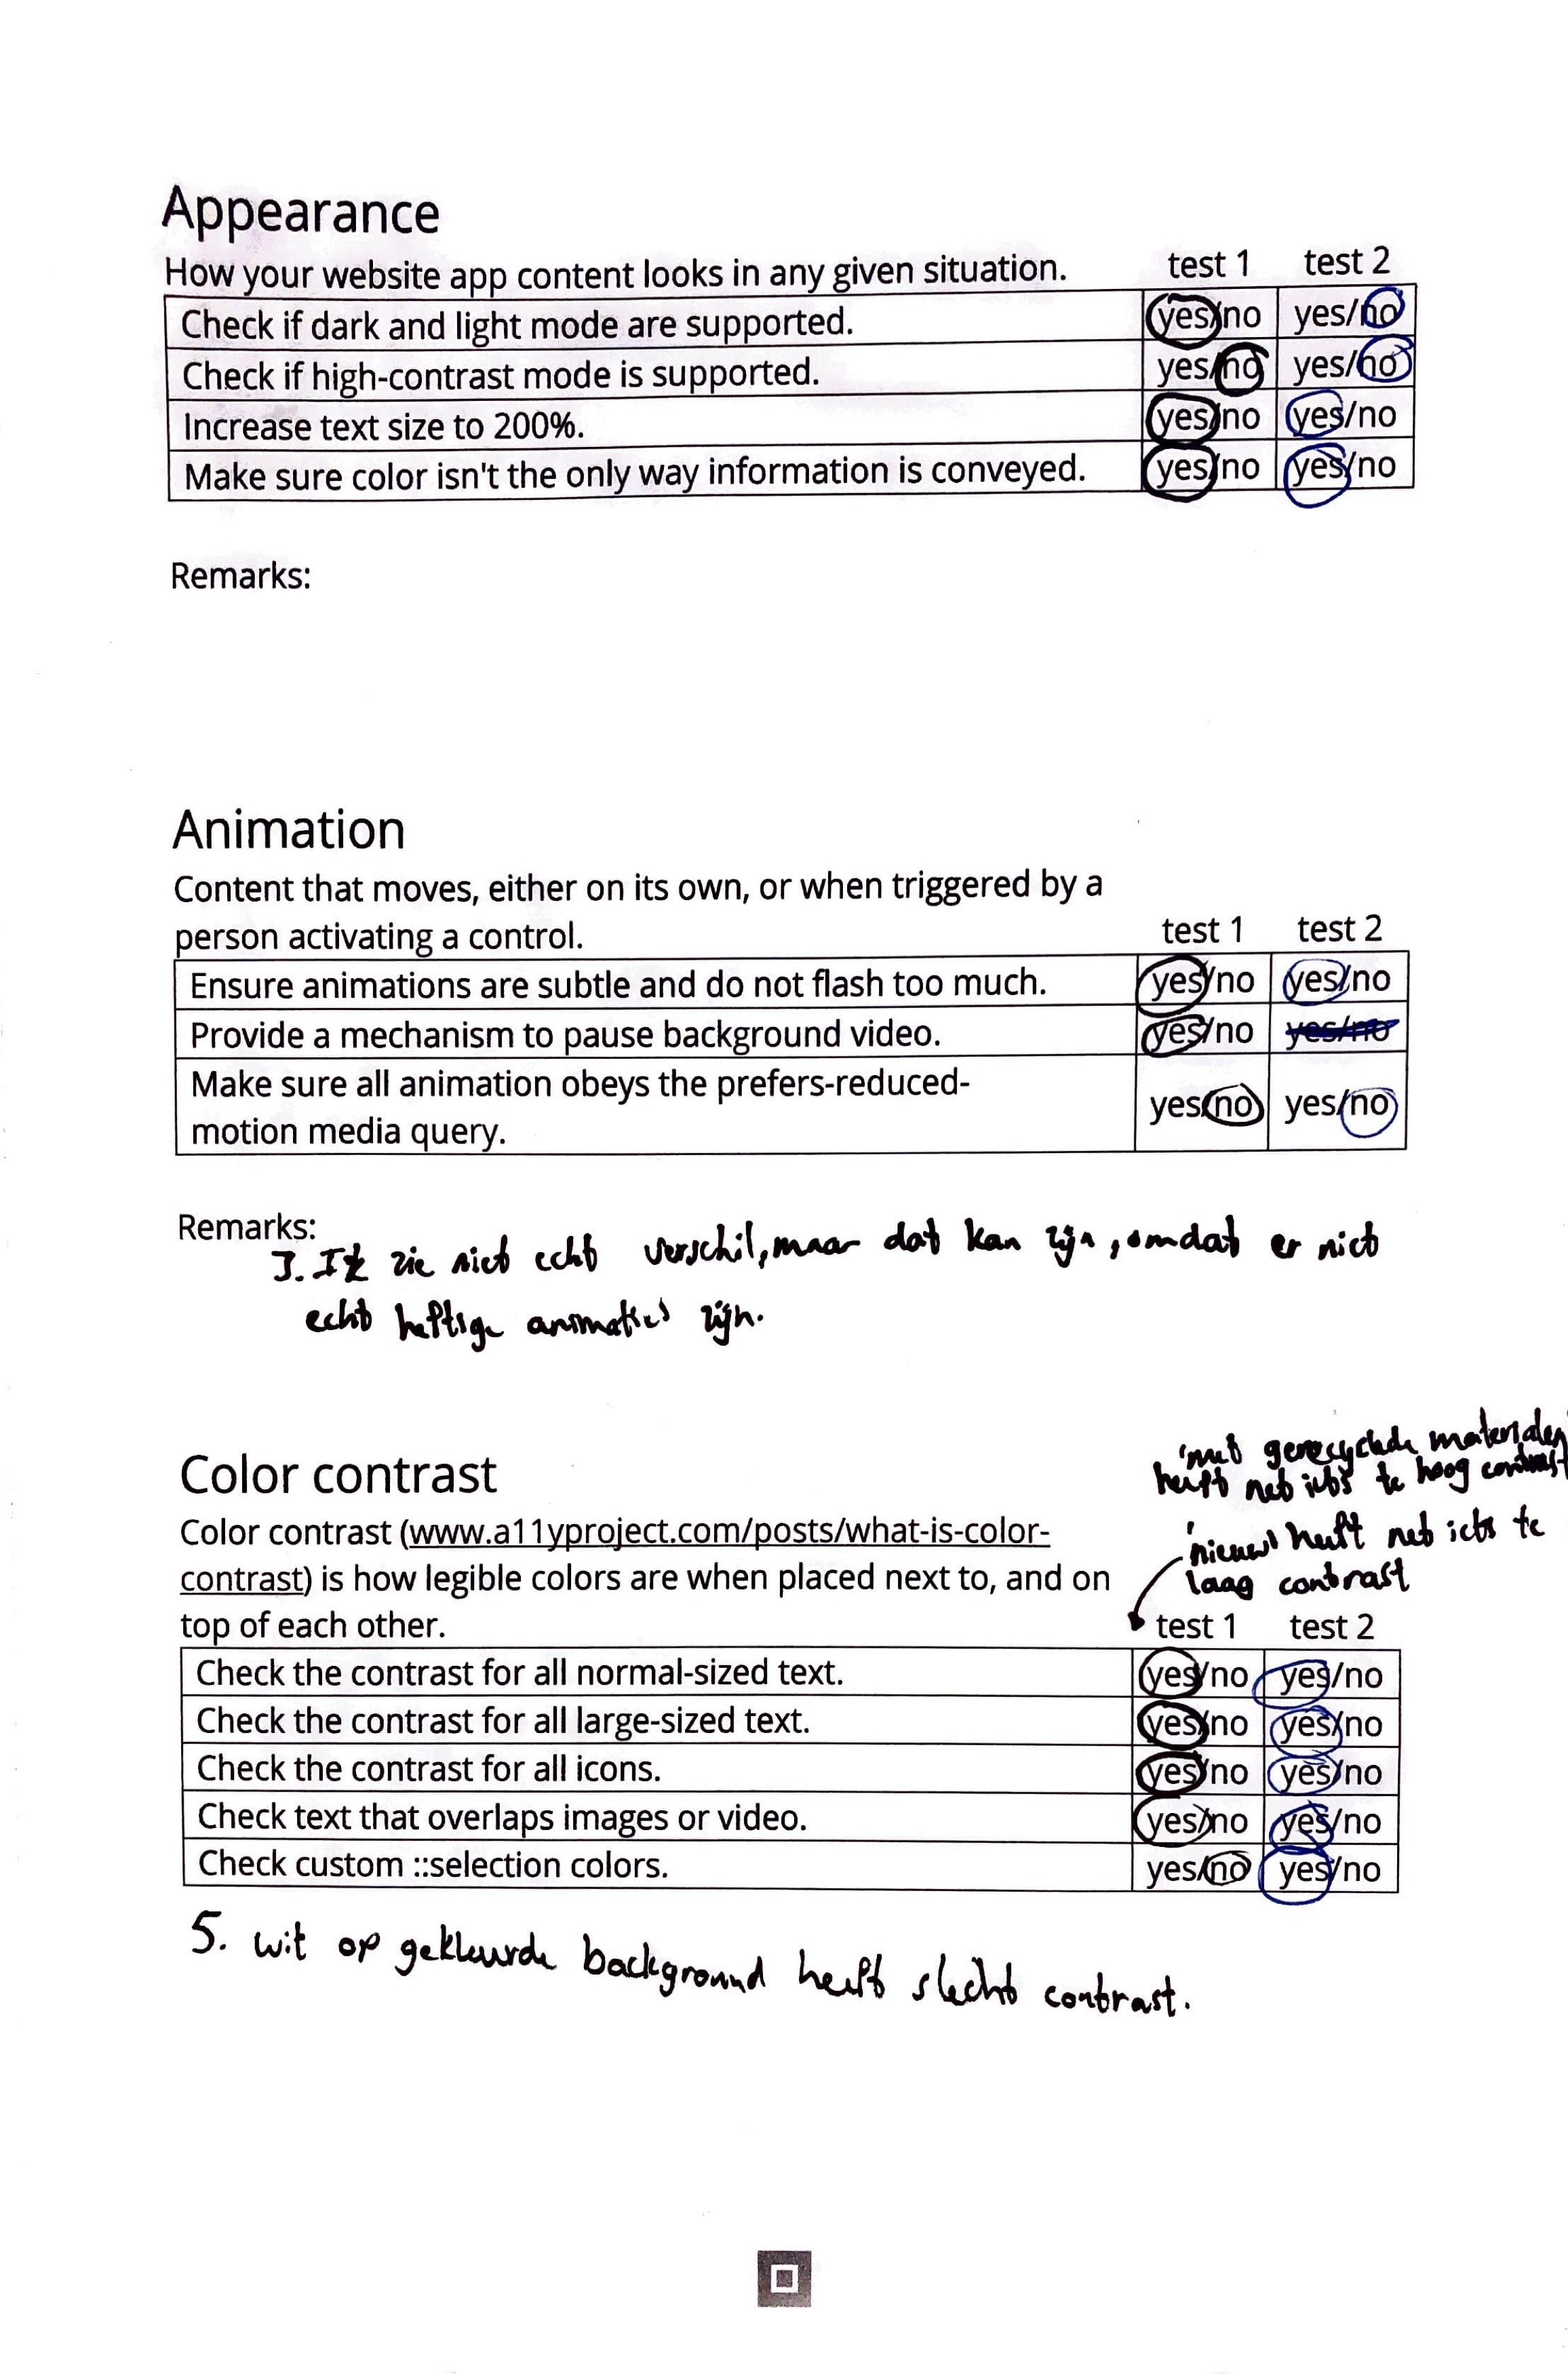 Appearance
How your website app content looks in any given situation. test 1 test 2
Check if dark and light mode are supported. yes/no yes/no
Check if high-contrast mode is supported. yes/no yes/no
Increase text size to 200%. yes/no yes/no
Make sure color isn't the only way information is conveyed. yes/no yes/no
Remarks:
Animation
Content that moves, either on its own, or when triggered by a
person activating a control. test 1 test 2
Ensure animations are subtle and do not flash too much. yes/no yes/no
Provide a mechanism to pause background video. yes/no yes/no
Make sure all animation obeys the prefers-reduced-
motion media query. yes/no yes/no
Remarks:
3. Ik zie niet echt verschil, maar dat kan zijn, omdat er niet
echt heftige animaties zijn.
'met gerecyclede materialen'
heeft net iets te hoog contrast
Color contrast
Color contrast (www.a11yproject.com/posts/what-is-color-
'nieuw' heeft net iets te
contrast) is how legible colors are when placed next to, and on
laag contrast
top of each other. test 1 test 2
Check the contrast for all normal-sized text. yes/no yes/no
Check the contrast for all large-sized text. yes/no yes/no
Check the contrast for all icons. yes/no yes/no
Check text that overlaps images or video. yes/no yes/no
Check custom ::selection colors. yes/no yes/no
5. wit op gekleurde background heeft slecht contrast.